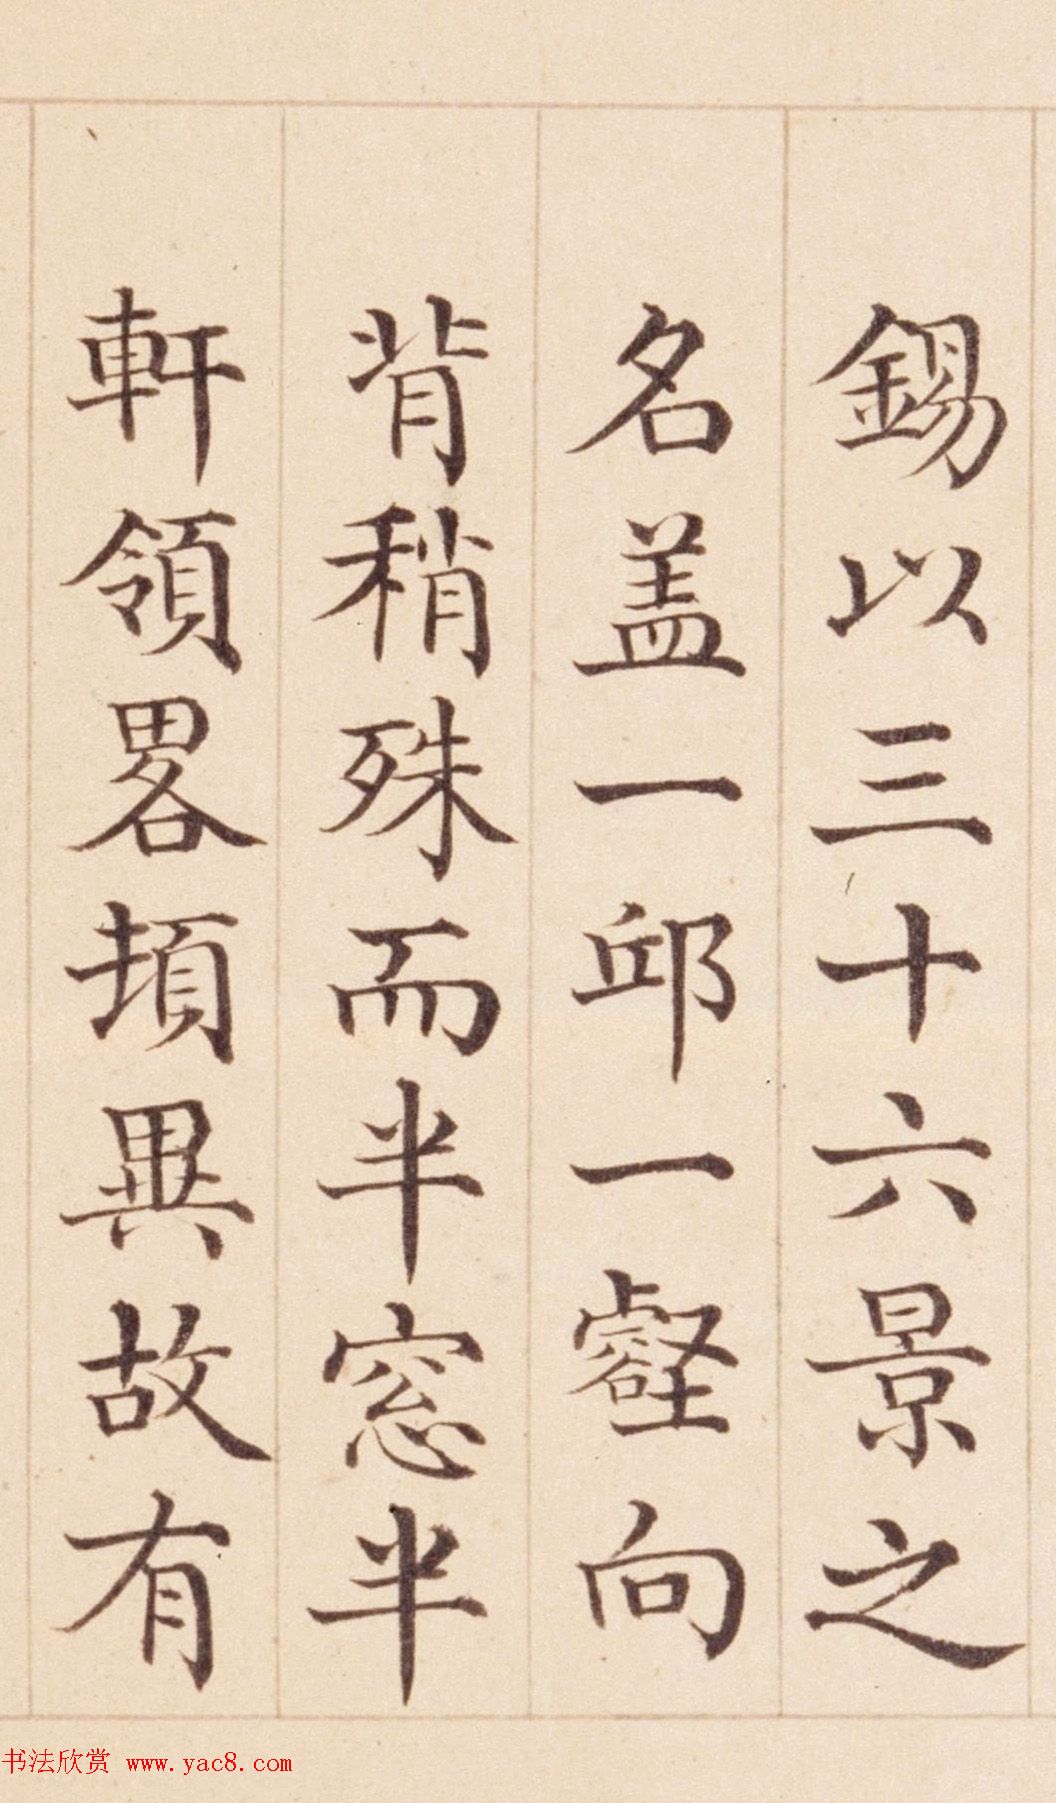 錫以三十六景之
名盖一邱一壑向
背稍殊而半窓半
軒領畧頓異故有
书法欣赏 www.yac8.com